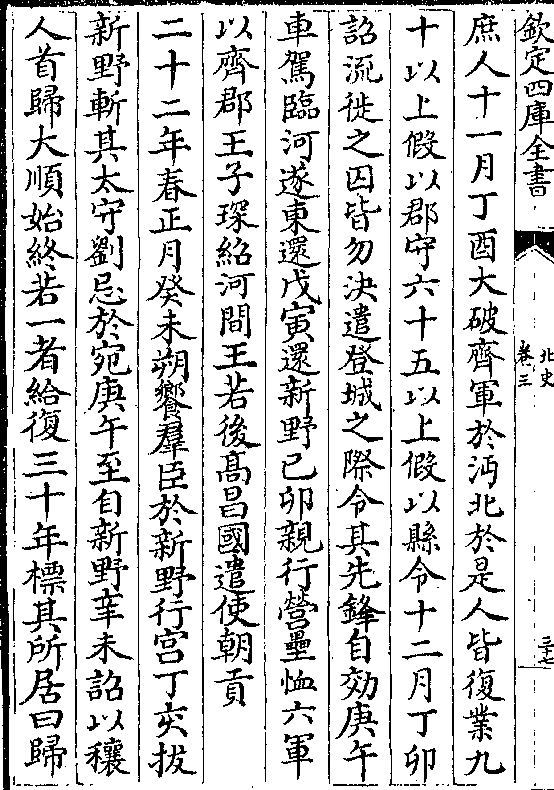 欽定四庫全書
北史
卷三
三七
庶人十一月丁酉大破齊軍於沔北於是人皆復業九
十以上假以郡守六十五以上假以縣令十二月丁卯
詔流徙之囚皆勿決遣登城之際令其先鋒自効庚午
車駕臨河遂東還戊寅還新野已卯親行營壘恤六軍
以齊郡王子琛紹河間王若後髙昌國遣使朝貢
二十二年春正月癸未朔饗羣臣於新野行宫丁亥拔
新野斬其太守劉忌於宛庚午至自新野辛未詔以穰
人首歸大順始終若一者給復三十年標其所居曰歸